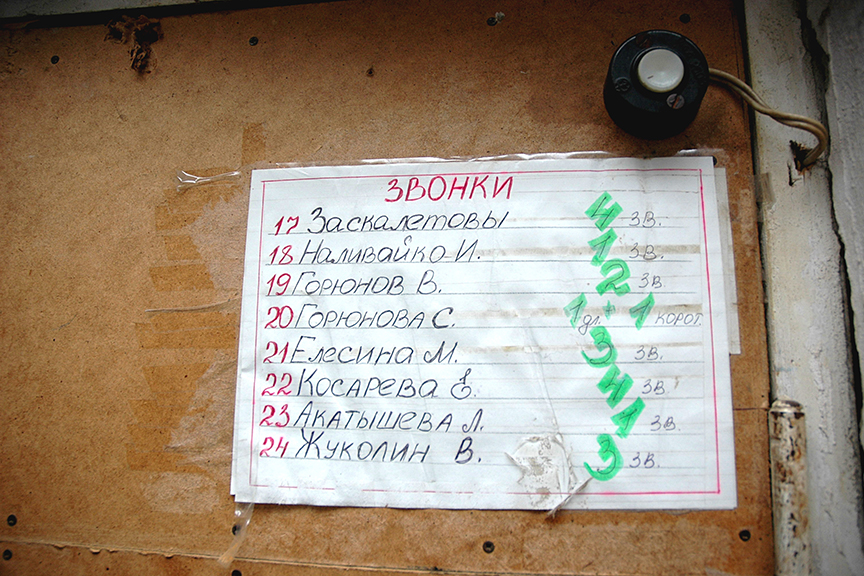 ЗВОНКИ
17 Заскалетовы 4 зв.
18 Наливайко И. 1 зв.
19 Горюнов В. 2 зв.
20 Горюнова С. 1 дл. + 1 корот.
21 Елесина М. 3 зв.
22 Косарева Е. 4 зв.
23 Акатышева Л. 1 зв.
24 Жуколин В. 3 зв.